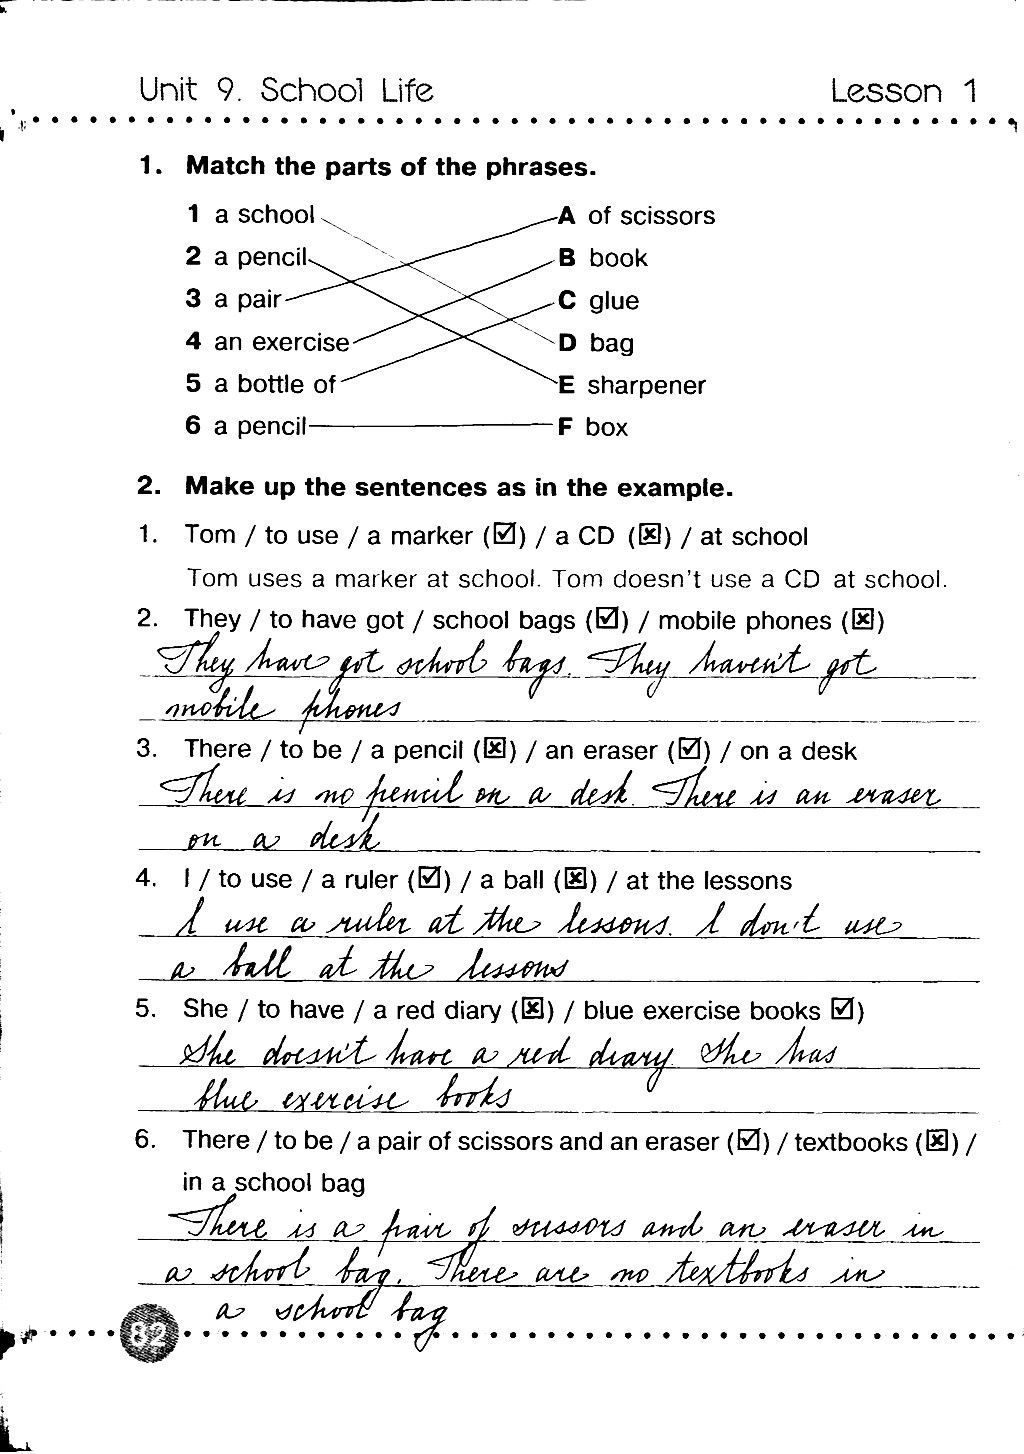 Unit 9. School Life Lesson 1
1. Match the parts of the phrases.
1 a school A of scissors
2 a pencil B book
3 a pair C glue
4 an exercise D bag
5 a bottle of E sharpener
6 a pencil F box
2. Make up the sentences as in the example.
1. Tom / to use / a marker (☑) / a CD (☒) / at school
Tom uses a marker at school. Tom doesn't use a CD at school.
2. They / to have got / school bags (☑) / mobile phones (☒)
They have got school bags. They haven't got
mobile phones
3. There / to be / a pencil (☒) / an eraser (☑) / on a desk
There is no pencil on a desk. There is an eraser
on a desk
4. I / to use / a ruler (☑) / a ball (☒) / at the lessons
I use a ruler at the lessons. I don't use
a ball at the lessons
5. She / to have / a red diary (☒) / blue exercise books ☑)
She doesn't have a red diary She has
blue exercise books
6. There / to be / a pair of scissors and an eraser (☑) / textbooks (☒) /
in a school bag
There is a pair of scissors and an eraser in
a school bag. There are no textbooks in
a school bag
82